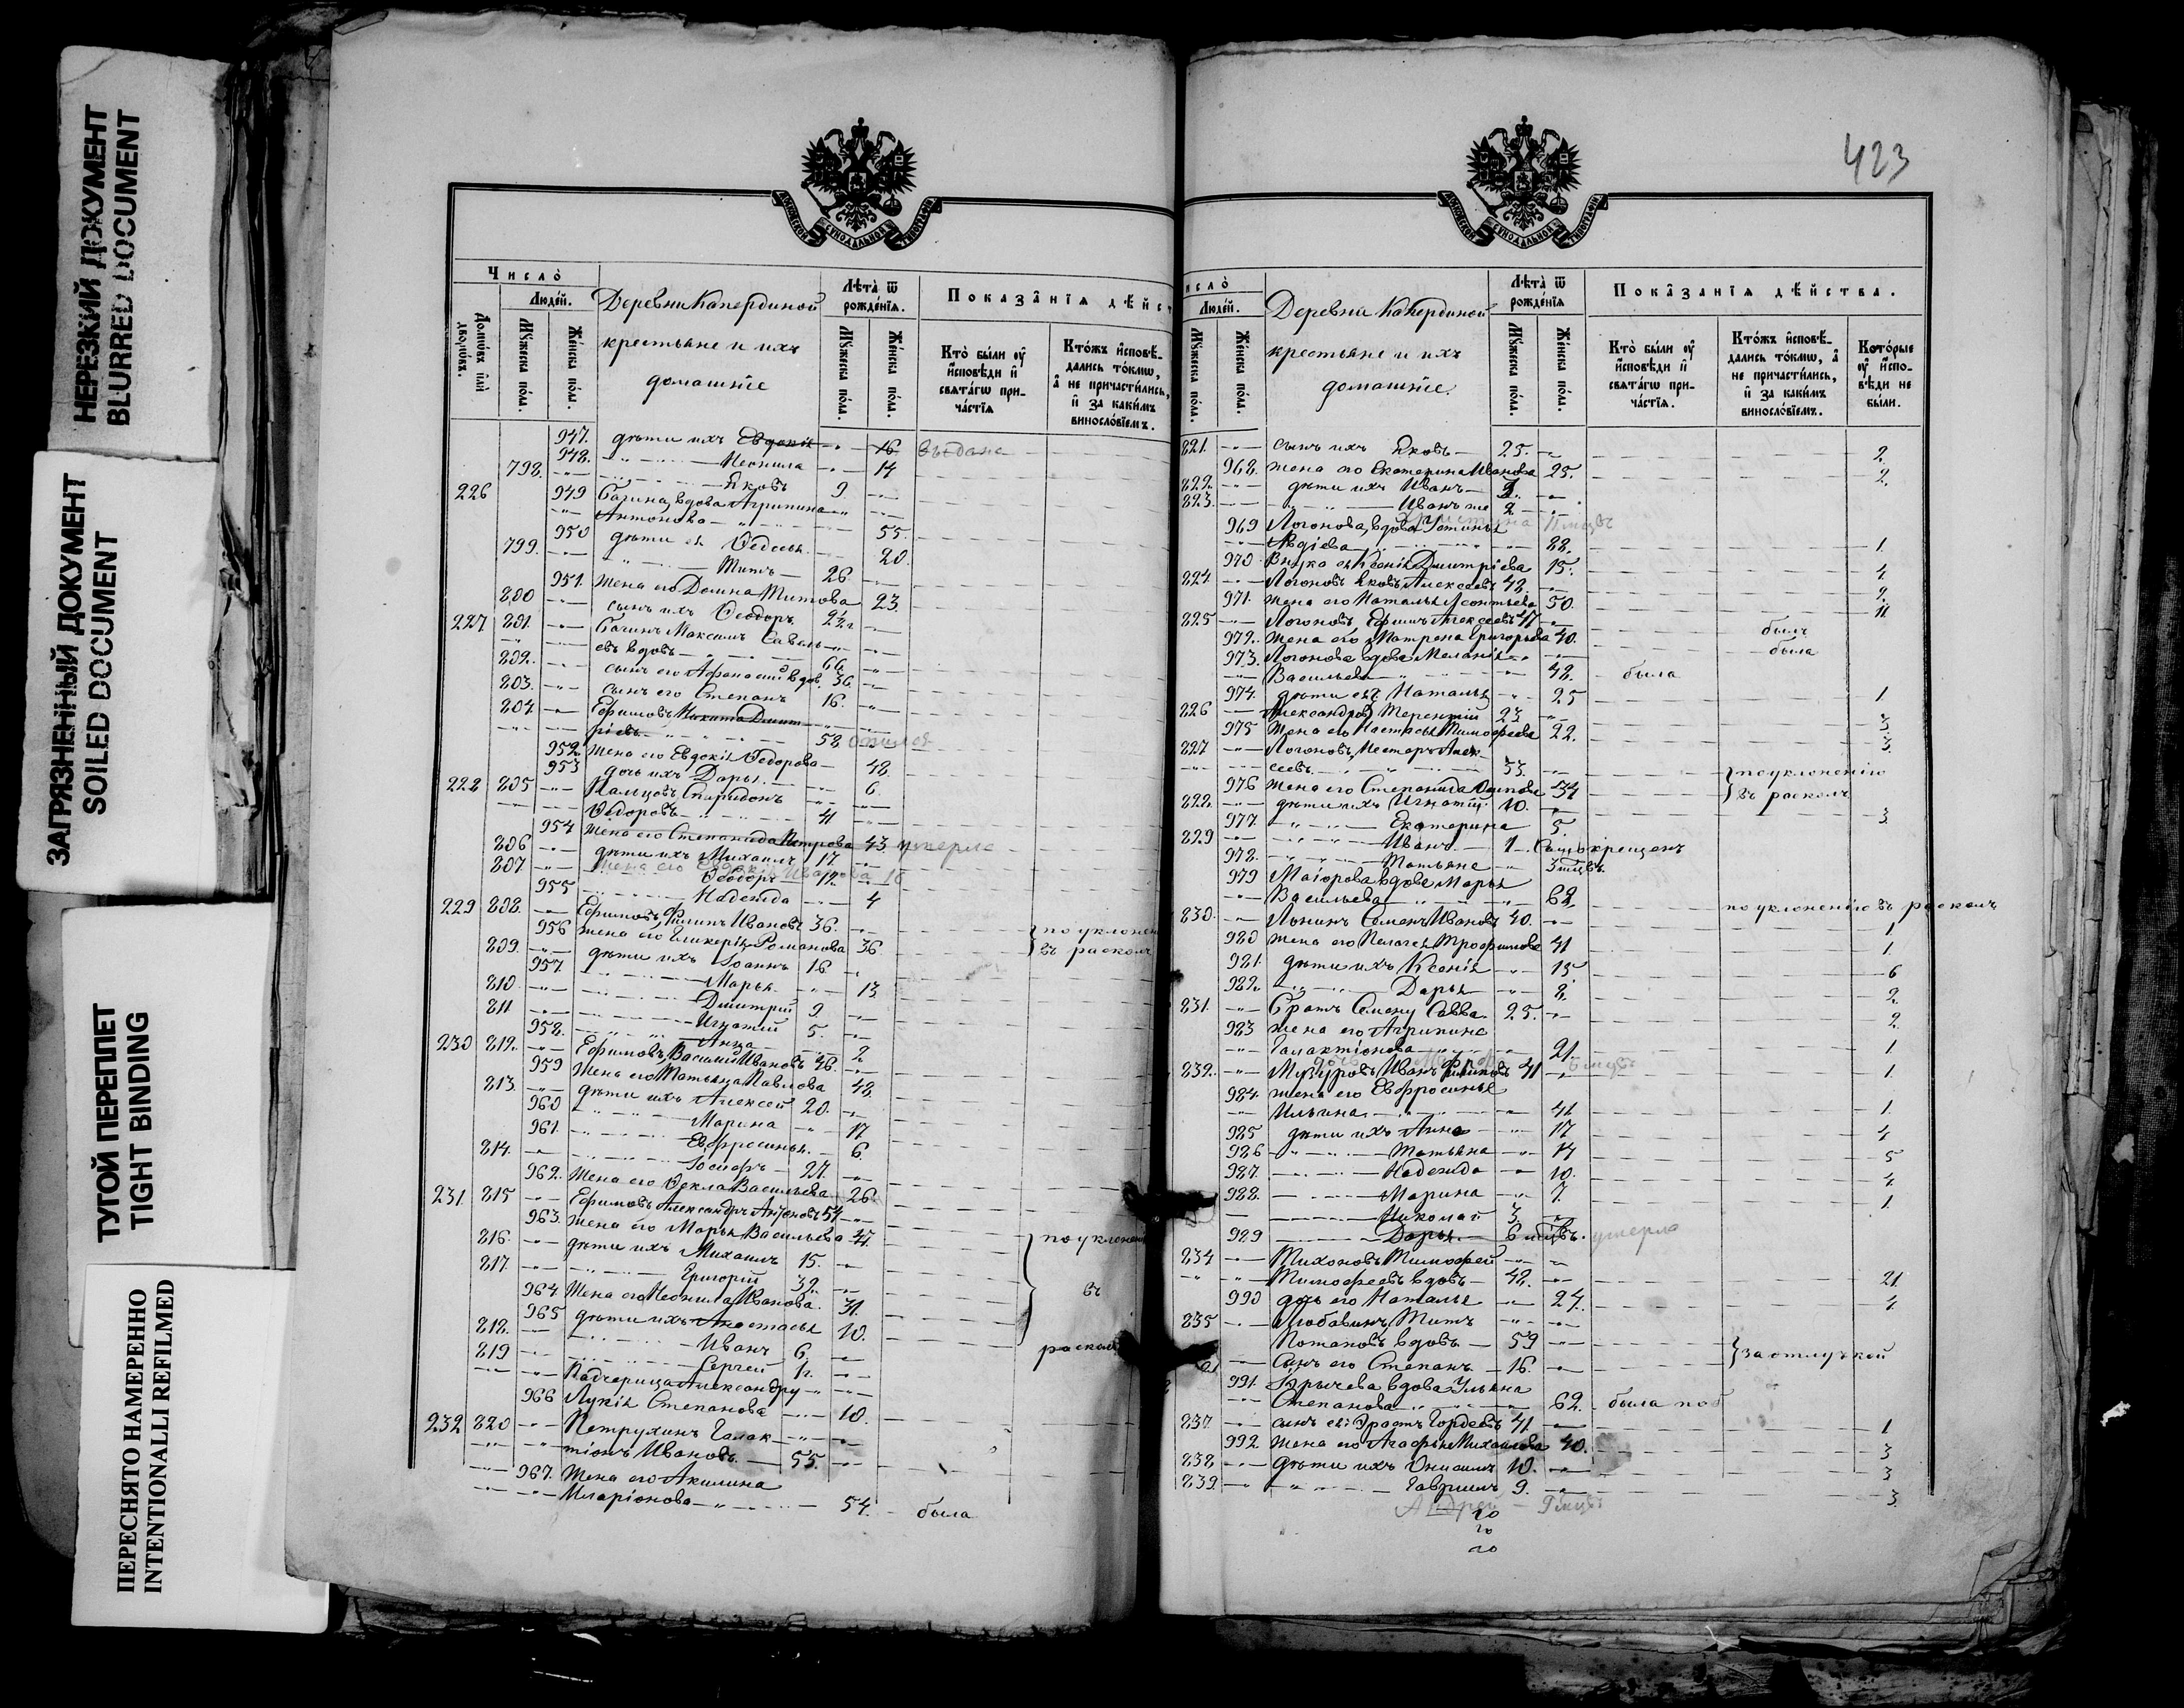 НЕРЕЗКИЙ ДОКУМЕНТ
BLURRED DOCUMENT
ЗАГРЯЗНЕННЫЙ ДОКУМЕНТ
SOILED DOCUMENT
ТУГОЙ ПЕРЕПЛЕТ
TIGHT BINDING
ПЕРЕСНЯТО НАМЕРЕННО
INTENTIONALLI REFILMED
Число̀
Людей.
Деревни Капердиной
крестьяне и ихъ
домашніе
Лѣта̀ ѿ рожде́нїѧ.
Показа̂нїѧ дѣйст
Домѡ́въ и҆лѝ дворѡ́въ.
Мꙋ́жеска по́ла.
Же́нска по́ла.
Мꙋ́жеска по́ла.
Же́нска по́ла.
Кто̀ бы́ли ᲂу҆ и҆́сповѣди и҆ свѧта́гѡ при-ча́стїѧ
Кто́жъ и҆сповѣ́-дались то́кмѡ, а҆ не причасти́лись, и҆ за каки́мъ винosло́вїемъ.
947. дѣти ихъ Евдокія 16 выдана
948. Неонила 14
798. Яковъ 9
226 949 вдова Агрипина
Антонова 55.
950 дѣти ея Ѳедосья 20
799. Титъ 26.
951. жена его Домна Титова 23.
800 сынъ ихъ Ѳеодоръ
227 801. Максимъ Савель-
евъ вдовъ 66.
802. сынъ его Афанасій вдов. 36.
803. сынъ его Степанъ 16.
804. Ефимовъ Никита Дмит-
ріевъ 58
952. жена его Евдокія Ѳедорова 48.
953 дочь ихъ Дарья 6.
228 805 Спиридонъ
Ѳедоровъ 41
954 жена его Степанида Петрова 43. умерла
806 дѣти ихъ Михаилъ 17
жена его Евдокія Иванова 18
807 Ѳеодоръ 12.
955 Надежда 4
229 808. Ефимовъ, Филипъ Ивановъ 36.
956 жена его Гликерія Романова 36. по уклонен
809. дѣти ихъ Іоаннъ 16 въ расколъ
957 Марья 13
810. Дмитрій 9.
811 Игнатій 5.
958. Анна 2
230 812. Ефимовъ, Василій Ивановъ 46.
959 жена его Татьяна Павлова 48.
813. дѣти ихъ Алексей 20.
960 Марина 17
961. Евфросинья 6.
814. Іосифъ 27.
962. жена его Ѳекла Васильева 26
231. 815 Ефимовъ Александръ Антоновъ 51
963. жена его Марья Васильева 47.
816. дѣти ихъ Михаилъ 15. по уклонен
817. Григорій 32.
964 жена его Неонила Иванова. 31. въ
965 дѣти ихъ Анастасья 10.
818. Иванъ 6. раскол
819 Сергей 1 г.
Падчерица Александру
966 Лукія Степанова 10.
232 820 Петрухинъ Галак-
тіонъ Ивановъ 55.
967. жена его Акилина
Иларіонова 54. была
423
исло̀
Людей.
Деревни Капердиной
крестьяне и ихъ
домашніе.
Лѣта̀ ѿ рожде́нїѧ.
Показа̂нїѧ дѣ́йства.
Мꙋ́жеска по́ла.
Же́нска по́ла.
Мꙋ́жеска по́ла.
Же́нска по́ла.
Кто̀ бы́ли ᲂу҆ и҆́сповѣди и҆ свѧта́гѡ при-ча́стїѧ.
Кто́жъ и҆сповѣ́-дались то́кмѡ, а҆ не причасти́лись, и҆ за каки́мъ винosло́вїемъ.
Кото́рые ᲂу҆ и҆́спо-вѣди не бы́ли.
821. сынъ ихъ Яковъ 25. 2.
968. жена его Екатерина Иванова 25. 2.
822. дѣти ихъ Иванъ
823. Иванъ же 2
969 Логонова, вдова Устинья
Авдіева 88. 1.
970. Внука ея Ксенія Дмитріева 15. 4
824. Логоновъ Яковъ Алексеевъ 48. 2.
971. жена его Наталья Леонтьева 50. 11
825 Логоновъ, Ефимъ Алексеевъ 47 былъ
972. жена его Матрена Григорьева 40. была
973. Логонова вдова Меланія
Васильева 48. была
974. дѣти ея Наталья 25 1.
826 Александровъ Терентій 23 3.
975 жена его Настасья Тимофеева 22. 3.
827 Логоновъ, Несторъ Алек-
сеевъ 33. по уклоненію
976 жена его Степанида Осипова 34 въ расколъ
828. дѣти ихъ Игнатій 10. 3
977. Екатерина 5.
829 Иванъ 1 крещенъ
978. Татьяна 3 мцъ.
979 Маіорова вдова Марья
Васильева 68. по уклоненію въ расколъ
830. Лынинъ Семенъ Ивановъ 40. 1
980 жена его Пелагея Трофимова 41 1.
981. дѣти ихъ Ксенія 15 6
982. Дарья 8. 2
831. Братъ Семену Савва 25. 2
983 жена его Агрипина
Галактіонова 21 1
832. Мизуровъ, Иванъ Филиповъ 41 1.
984. жена его Евфросинья
Ильина 41 1.
985 дѣти ихъ Анна 17 4
986 Татьяна 14 5
987. Надежда 10. 4
988. Марина 7. 1.
Николай 3.
989 Дарья 6 мцвъ. умерла
834 Тихоновъ Тимофей
Тимофеевъ вдовъ 48. 21.
990 дочь его Наталья 24. 4
835 Любавинъ, Титъ
Потаповъ вдовъ 59 за отлучкой
сынъ его Степанъ 16.
991. Крычева вдова Ульяна
Степанова 62. была
837 сынъ ея: Эрастъ Гордеевъ 41 1
992. жена его Агафья Михайлова 40. 3
838 дѣти ихъ Онисимъ 10. 3
839. Гавріилъ 9. 3.
Андрей 9 мцвъ